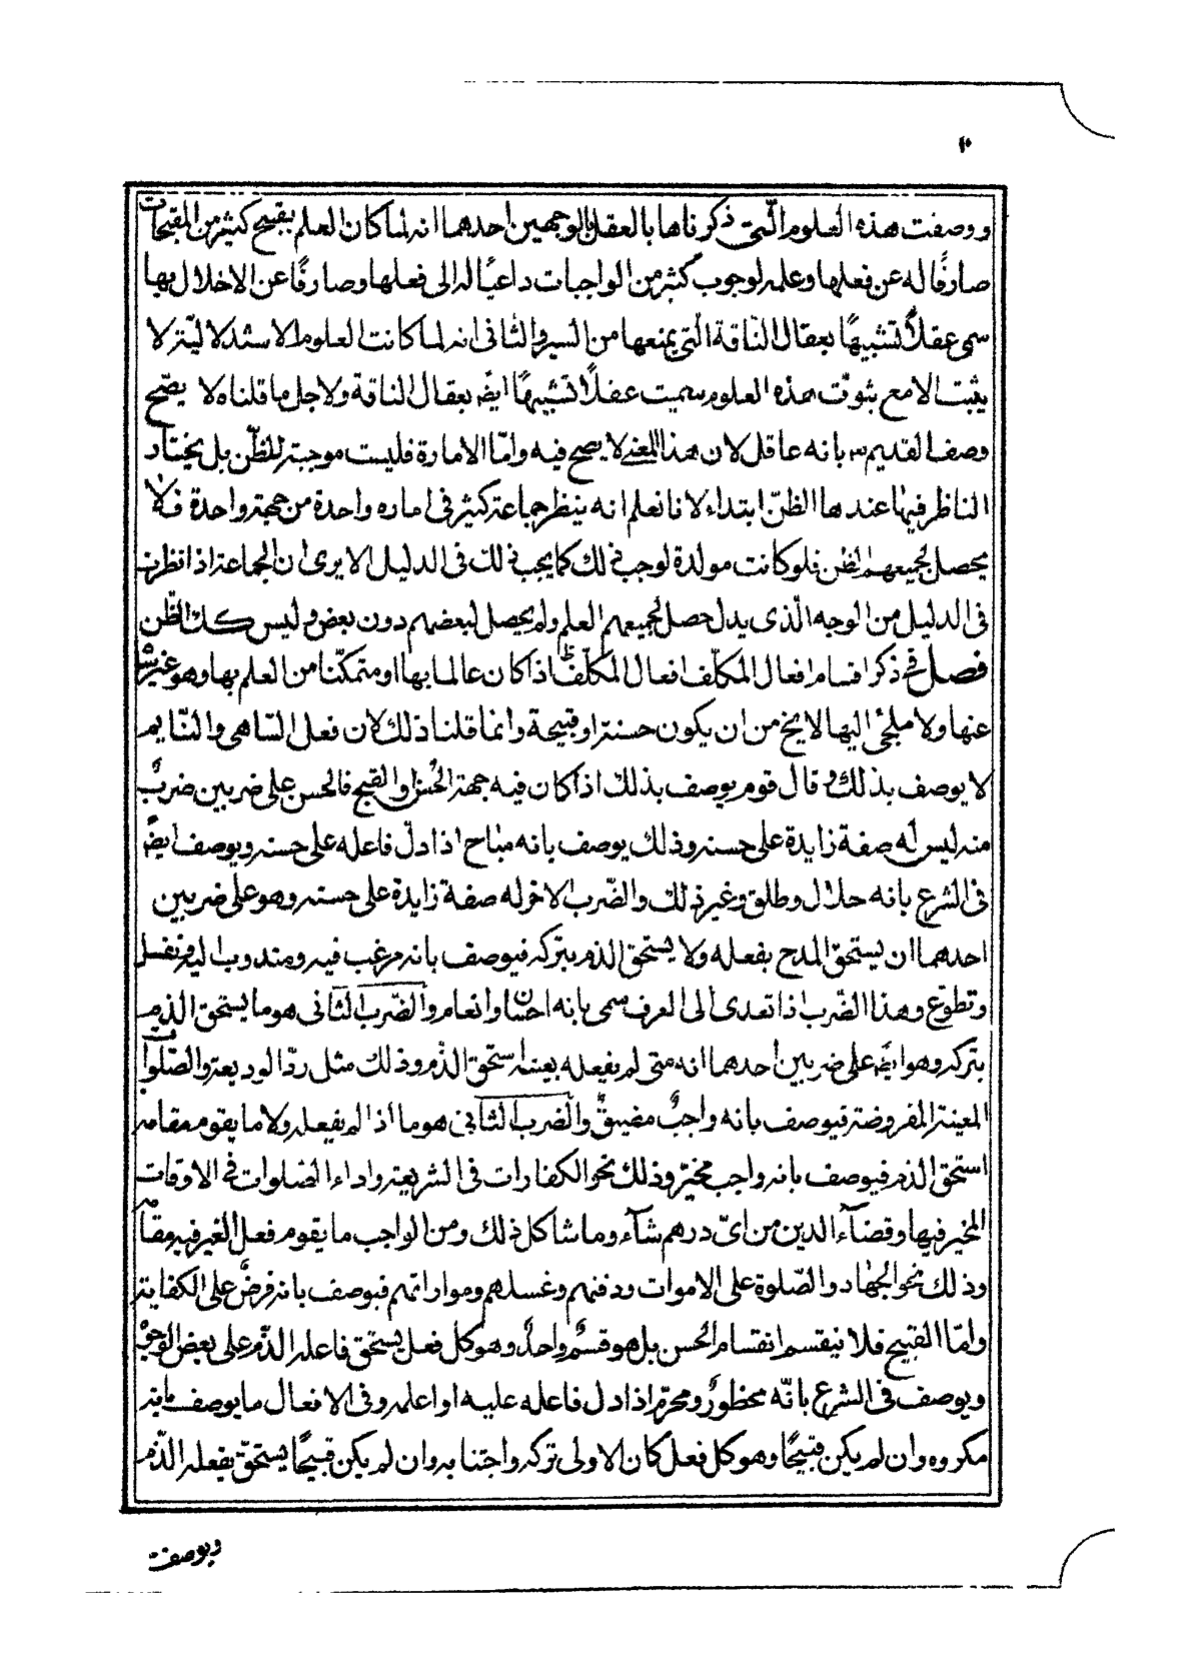 ١٠
ووصفت هذه العلوم الّتى ذكرناها بالعقل لوجهين احدهما انه لما كان العلم بقبح كثير من المقبحات
صارفًا له عن فعلها وعلمه لوجوب كثير من الواجبات داعيًا له الى فعلها وصارفًا عن الاخلال بها
سمى عقلاً تشبيهًا بعقال النّاقة الّتى يمنعها من السير والثانى انه لما كانت العلوم الاستدلالية لا
يثبت الا مع ثبوت هذه العلوم سميت عقلاً تشبيهًا ايضً بعقال الناقة ولاجل ما قلناه لا يصّح
وصف القديم تع بانه عاقل لان هذا المعنى لا يصح فيه وامّا الامارة فليست موجبة للظّن بل يختار
الناظر فيها عندها الظنّ ابتداء لانا نعلم انه ينظر جماعة كثير فى اماره واحدة من جهة واحدة فلا
يحصل لجميعهم الظن فلو كانت مولدة لوجب ذلك كما يجب ذلك فى الدليل الا يرى ان الجماعة اذا نظرت
فى الدليل من الوجه الّذى يدل حصل لجميعهم العلم ولم يحصل لبعضهم دون بعض وليس كك الظّن
فصل فى ذكر اقسام افعال المكلّف افعال المكلّف اذا كان عالما بها او متمكّنا من العلم بها وهو غير
عنها ولا ملجئ اليها لا يخ من ان يكون حسنة او قبيحة وانما قلنا ذلك لان فعل السّاهى والنّايم
لا يوصف بذلك وقال قوم يوصف بذلك اذا كان فيه جهة الحُسن والقبح فالحسن على ضربين ضربٌ
منه ليس له صفة زايدة على حسنه وذلك يوصف بانه مباح اذا دلّ فاعله على حسنه ويوصف ايضً
فى الشرع بانه حلال وطلق وغير ذلك والضّرب الاخر له صفة زايدة على حسنه وهو على ضربين
احدهما ان يستحق المدح بفعله ولا يستحق الذم بتركه فيوصف بانه مرغب فيه ومندوب اليه ونفل
وتطوّع وهذا الضّرب اذا تعدى الى العرف سمى بانه احسان وانعام والضّرب الثّانى هو ما يستحق الذم
بتركه وهو ايضً على ضربين احدهما انه متى لم يفعله بعينه استحق الذّم وذلك مثل ردّ الوديعة والصّلوات
المعينة المفروضة فيوصف بانه واجبٌ مضيقٌ والضرب الثانى هو ما اذا لم يفعله ولا ما يقوم مقامه
استحق الذم فيوصف بانه واجب مخيّر وذلك نحو الكفارات فى الشريعة واداء الصلوات فى الاوقات
المخير فيها وقضآء الدين من اىّ درهم شآء وما شاكل ذلك ومن الواجب ما يقوم فعل الغير فيه مقامه
وذلك نحو الجهاد والصّلوة على الاموات ودفنهم وغسلهم ومواراتهم فيوصف بانه فرضٌ على الكفاية
وامّا القبيح فلا ينقسم انقسام الحسن بل هو قسمٌ واحدٌ وهو كل فعل يستحق فاعله الذّم على بعض الوجوه
ويوصف فى الشرع بانّه محظورٌ ومحرّم اذا دل فاعله عليه او اعلمه وفى الافعال ما يوصف بانه
مكروه وان لم يكن قبيحًا وهو كل فعل كان الاولى تركه واجتنابه وان لم يكن قبيحًا يستحقّ بفعله الذّم
ويوصف